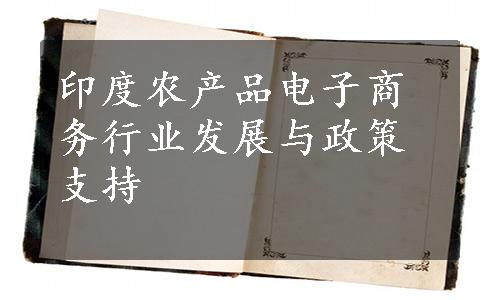 印度农产品电子商
务行业发展与政策
支持